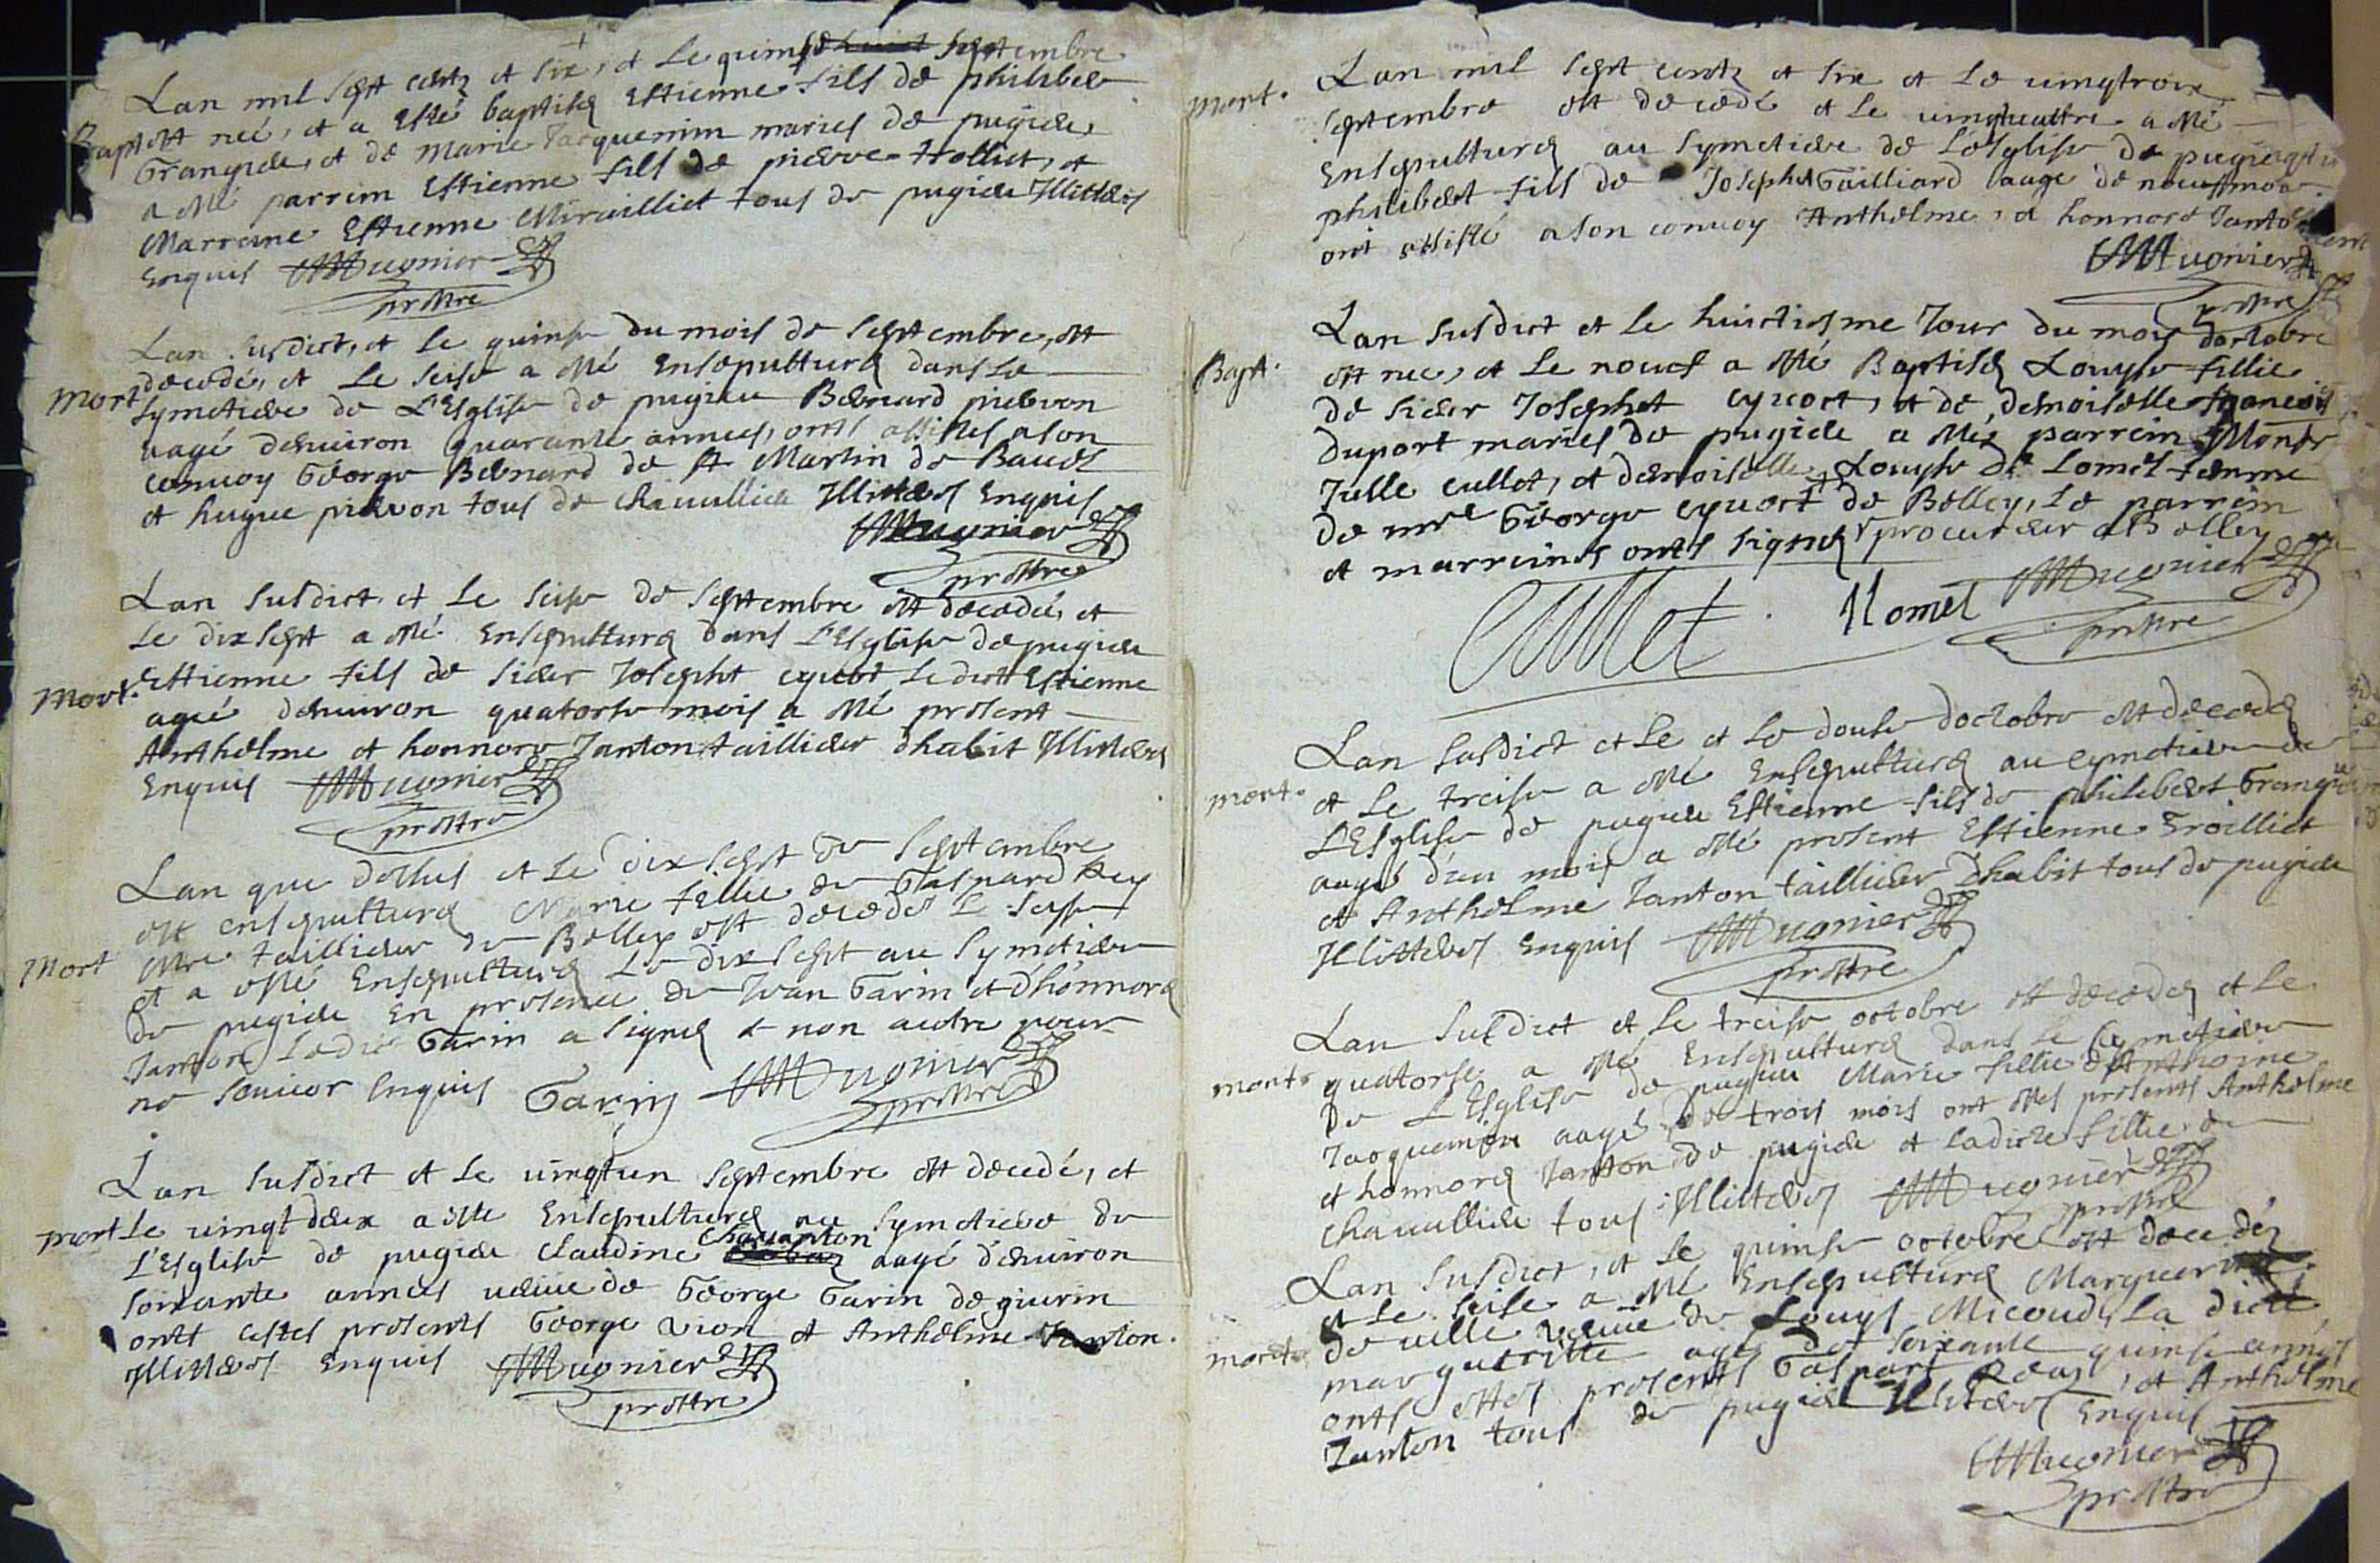 Lan mil sept centz et six, et Le quinse septembre
Bapt. est neé, et a esté baptisé Estienne fils de philibert
Grangide, et de marie Jacquemin mariés de pugieu
a esté parrein Estienne fils de pierre trolliet, et
Marreine Estienne Miraillict tous de pugieu Illitterés
Enquis Mugnier
prestre
Lan susdict, et Le quinse du mois de septembre, est
decedé, et Le seise a esté Ensepulturé dans Le
Mort symetiere de L'Eglise de pugieu Bernard pieron
aagé denuiron quarante années, onts assistes a son
conuoy George Bernard de st Martin de Bauel
et hugue pieron tous de chauullieu Illitterés Enquis
Mugnier
prestre
Lan susdict et Le seise de septembre est decedé, et
Le dix sept a esté Ensepulturé dans L'Eglise de pugieu
Mort. Estienne fils de sieur Josepht cyuoct Ledict Estienne
agé denuiron quatorse mois a esté present
Anthelme et honnoré Janton taillieur dhabit Illitterés
Enquis Mugnier
prestre
Lan que dessus et Le dix sept de septembre
est ensepulturé Marie fillie de Gaspard Rey
Mort Mre taillieur de Belley est decedé Le seise
et a esté Ensepulturé Le dix sept au symetiere
de pugieu En presence de Jean Garin et d'honnoré
Janton Ledict Garin a signé et non autre pour
ne scauoir Enquis Garin Mugnier
prestre
Lan susdict et Le uingtun septembre est decedé, et
mort Le uingt deux a este Ensepulturé au symetiere de
L'Eglise de pugieu Claudine Chauanton aagé d'enuiron
soixante années ueuue de George Garin de giurin
onts estes presents George Lion et Anthelme Janton.
Illitterés Enquis Mugnier
prestre
mort. Lan mil sept centz et six et Le uingtrois
septembre est decedé et Le uingtquattre a esté
Ensepulturé au symetiere de L'esglise de pugieu
philibert fils de Josepht Gailliard aagé de neuf mois
ont assisté a son conuoy Anthelme, et honnoré Janton
Mugnier
prestre
Lan susdict et Le huictiesme Jour du mois doctobre
Bapt. est nee, et Le neuf a esté Baptisé Louyse fillie
de sieur Josepht cyuoct, et de demoiselle francoise
duport mariés de pugieu a estés parrein Monsr
Julle cullet, et demoiselle Louyse de Lomel femme
de mre George cyuoct de Belley, Le parrein
et marreines onts signés procureur a Belley
Cullet Llomel Mugnier
prestre
Lan susdict et Le et Le douse doctobre est decedé
mort. et Le treise a esté Ensepulturé au cymetiere de
L'Esglise de pugieu Estienne fils de philibert Grangide
aagé d'un mois a esté present Estienne Troilliet
et Anthelme Janton taillieur dhabit tous de pugieu
Illitterés Enquis Mugnier
prestre
Lan susdict et Le treise octobre est decedé et Le
mort. quatorse a esté Ensepulturé dans Le cymetiere
de L'Esglise de pugieu Marie fillie d'Anthoine
Jacquemin aagé de trois mois ont estes presents Anthelme
et honnoré Janton de pugieu et Ladicte fillie de
chauullieu tous Illitterés Mugnier
prestre
Lan susdict, et Le quinse octobre est decedéz
et Le seise a esté Ensepulturé Marguerite
mort. de uille ueuue de Louys Micoud, La dicte
marguerite agé de soixante quinse années
onts estes presents Gaspard Reas, et Anthelme
Janton tous de pugieu Illiterés Enquis
Mugnier
prestre